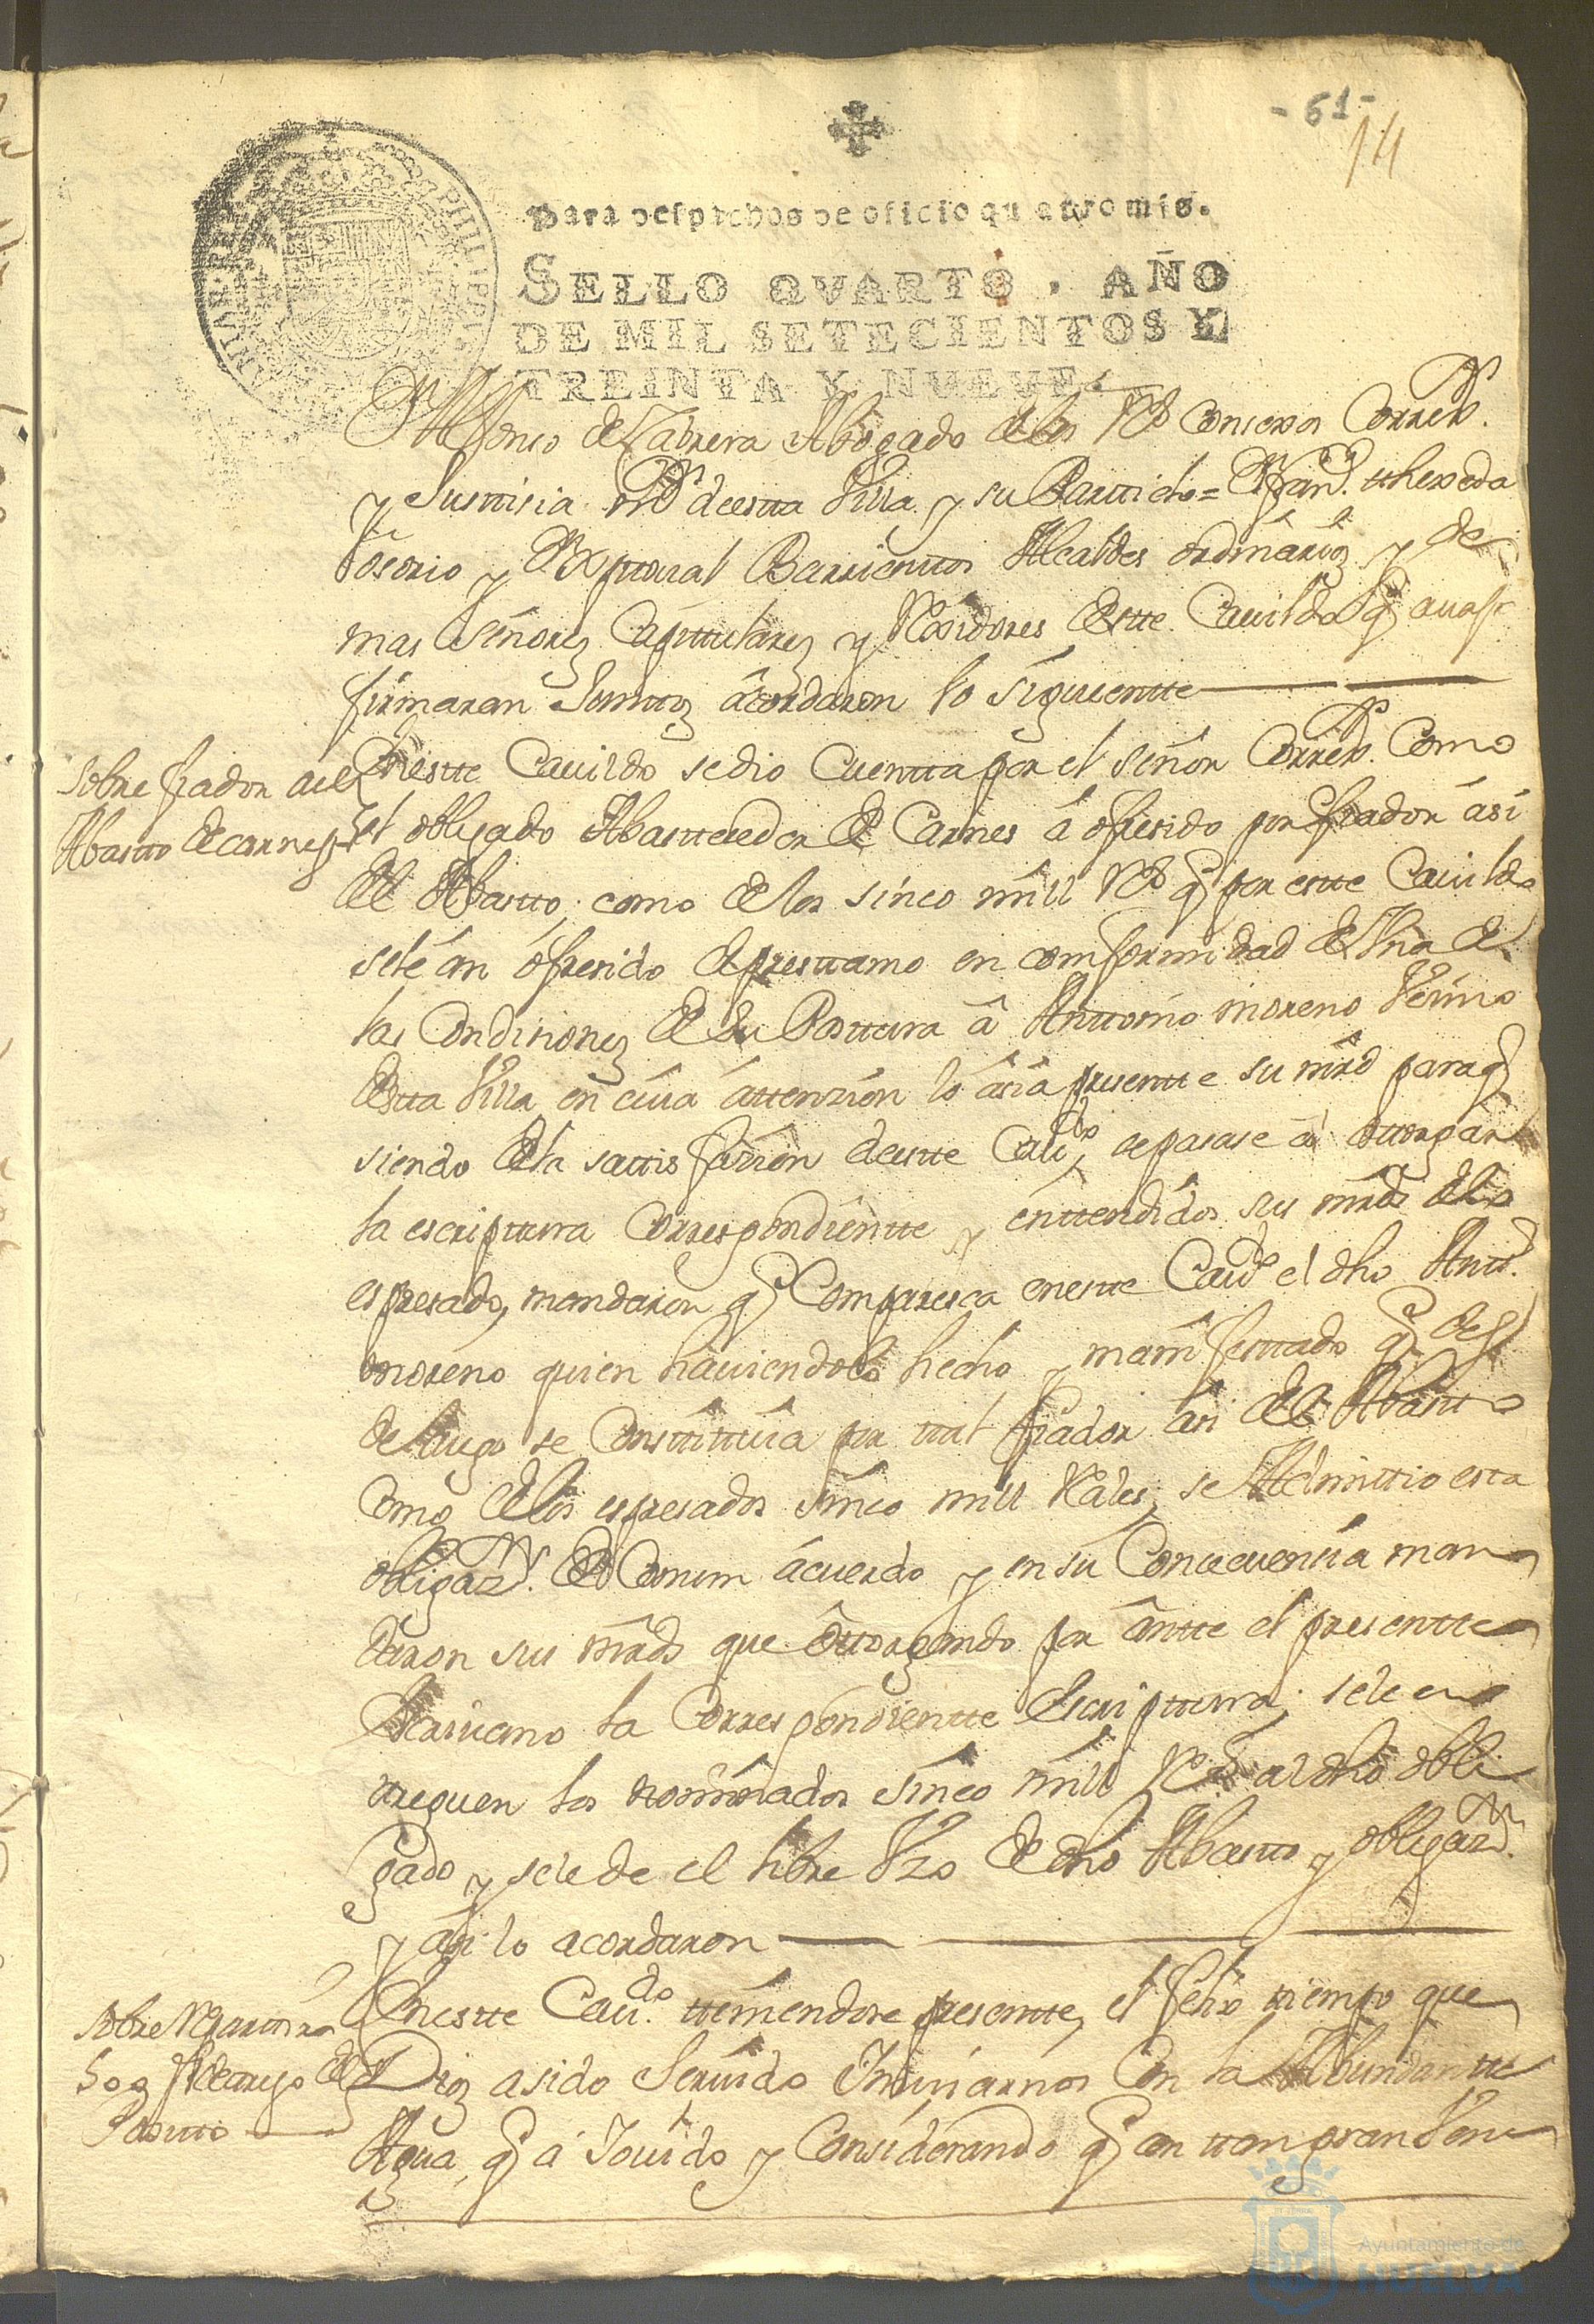 - 61 -
14
Para despachos de oficio quatro mrs.
SELLO QVARTO, AÑO
DE MIL SETECIENTOS Y
TREINTA Y NUEVE.
PHILIPPUS
Dn Alfonso de Cabrera Abogado de los Rs Consexos Correxor
y Justtisia mor de estta Villa y su Parttido = Dn Juan thexeda
Osorio y Dn Xpttoual Barrienttos Alcaldes ordinarios y de
mas Señores Capittulares y Rexidores de estte Cauildo q auajo
firmaran Junttos acordaron lo siguientte
Sobre fiador del
Abastto de carnes
En estte Cauildo se dio Cuentta por el señor Correxor Como
el obligado Abasttecedor de Carnes á ofresido por fiador ási
del Abastto, como de los sinco mill Rs q por estte Cauildo
se le án ófresido de presttamo en comformidad de Vna de
las Condisiones de su Posttura â Anttonio moreno Vesino
de estta Villa en cuia áttenzion lo asia presentte su mrd para q
siendo de la sattisfasion de estte Caudo, se pasase a ottorgar
la escripttura Correspondientte y enttendidos sus mrds de lo
espresado, mandaron q Comparesca en estte Caudo el dho Antto
moreno quien hauiendolo hecho, y manifesttado q des
de luego se Consttittuia por ttal fiador asi del Abastto
Como de los espresados sinco mill Rales, se Admittio esta
obligazn de Comun ácuerdo y en su Consecuensia man
daron sus mrds que ôttorgando por ântte el presentte
Escriuano la Correspondientte Escripttura, se le en
treguen los nominados sinco mill Rs al dho obli
gado y se le de el libre Vzo de dho Abastto y obligazn
y asi lo acordaron
Sobre Repartir
500 fs de trigo del
Positto
En estte Caudo ttemiendose presentte, el felis tiempo que
Dios a sido Seruido Inuiarnos Con la Abundantte
Agua, q á Jouido y Considerando q en ttan gran Vene
Ayuntamiento de
HUELVA